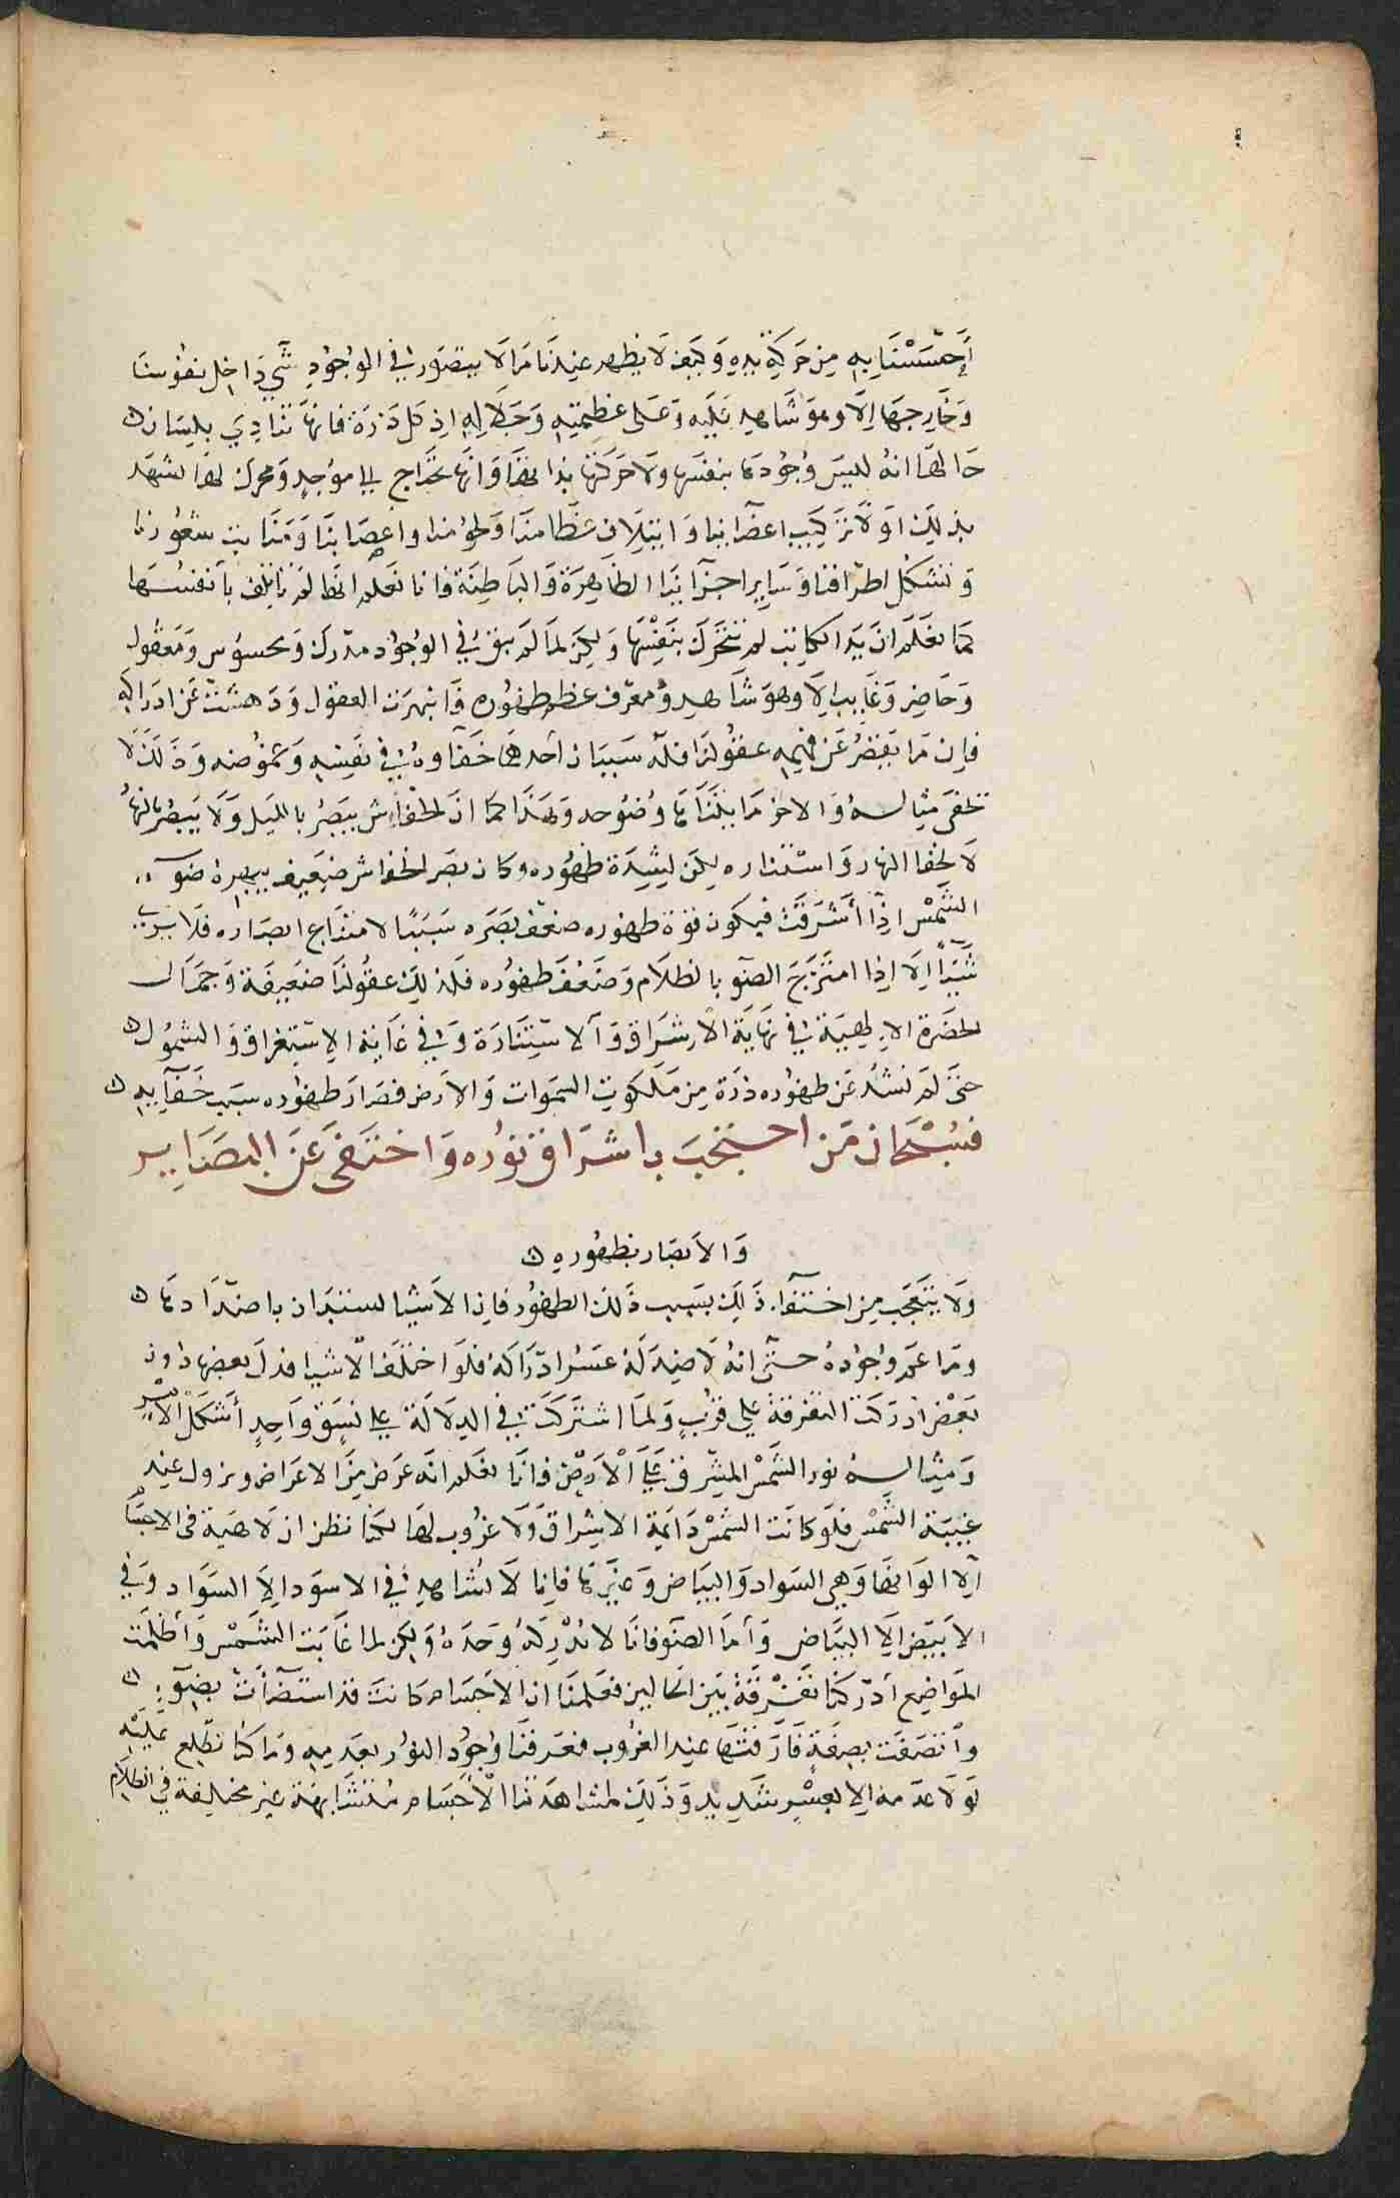 أحسسنا به من حركة يده وكيف لا يظهر عندنا ما لا يتصور في الوجود شي داخل نفوسنا
وخارجها الا وهو شاهد عليه وعلى عظمته وجلاله اذ كل ذرة فانها تنادي بلسان
حالها انه ليس وجودها بنفسها ولا حركتها بذاتها وانها تحتاج الى موجد ومحرك لها يشهد
بذلك اولا تركيب اعضاينا وايتلاف عظامنا ولحومنا واعصابنا ومنابت شعورنا
وتشكل اطرافنا وساير اجزاينا الظاهرة والباطنة فانا نعلم انها لم تاتلف بأنفسها
كما نعلم ان يد الكاتب لم تتحرك بنفسها ولكن لما لم يبق في الوجود مدرك ومحسوس ومعقول
وحاضر وغايب الا وهو شاهد ومعرف عظم ظهوره فانبهرت العقول ودهشت عن ادراكه
فان ما يقصر عن فهمه عقولنا فله سببان أحدهما خفاوه في نفسه وغموضه وذلك لا
تخفى مثاله والاخر ما يتناها وضوحه وهذا كما ان الخفاش يبصر بالليل ولا يبصر بالنهار
لا لخفا النهار واستتاره لكن لشدة ظهوره وكان بصر الخفاش ضعيف يبهره ضوء
الشمس اذا أشرقت فيكون قوة ظهوره مع ضعف بصره سببا لامتناع ابصاره فلا يرى
شيئا الا اذا امتزج الضو بالظلام وضعف ظهوره فلذلك عقولنا ضعيفة وجمال
الحضرة الالهية في نهاية الاشراق والاستنارة وفي غاية الاستغراق والشمول
حتى لم تشذ عن ظهوره ذرة من ملكوت السموات والارض فصار ظهوره سبب خفايه
فسبحان من احتجب باشراق نوره واختفى عن البصاير
والابصار بظهوره
ولا يتعجب من اختفاء ذلك بسبب ذلك الظهور فان الاشيا تستبان باضدادها
وما عم وجوده حتى انه لا ضد له عسر ادراكه فلو اختلف الاشيا فدل بعضها دون
بعض ادركت التفرقة على قرب ولما اشتركت في الدلالة على نسق واحد أشكل الأمر
ومثاله نور الشمس المشرق على الأرض فانا نعلم انه عرض من الاعراض ويزول عند
غيبة الشمس فلو كانت الشمس دايمة الاشراق ولا غروب لها لكنا نظن ان لا هية في الاجسام
الا الوانها وهي السواد والبياض وغيرها فانا لا نشاهد في الاسود الا السواد وفي
الابيض الا البياض وأما الضو فانا لا ندركه وحده ولكن لما غابت الشمس وأظلمت
المواضع أدركنا تفرقة بين الحالين فعلمنا ان الاجسام كانت قد استضأت بضوء
وأتصفت بصفة فارقتها عند الغروب فعرفنا وجود النور بعدمه وما كنا نطلع عليه
لولا عدمه الا بعسر شديد وذلك لمشاهدتنا الأجسام متشابهة غير مختلفة في الظلام